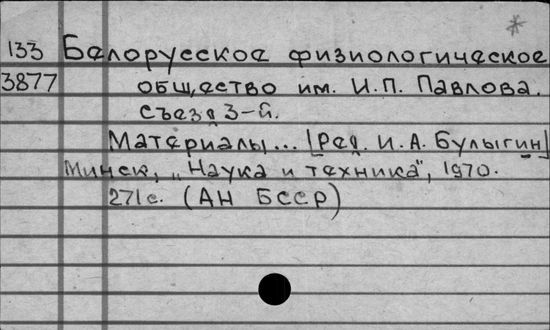 133 Белорусское физиологическое
3877 общество им. И.П. Павлова.
Съезд 3-й.
Материалы... [Ред. И.А. Булыгин]
Минск, „Наука и техника", 1970.
271с. (АН БССР)